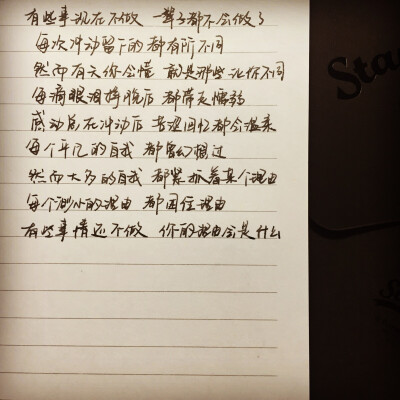 有些事现在不做 一辈子都不会做了
每次冲动留下的都有所不同
然而有天你会懂 就是那些让你不同
每滴眼泪挣脱后 都带走懦弱
感动总在冲动后 苦涩回忆都会温柔
每个平凡的自我 都曾幻想过
然而大多的自我 都紧抓着某个理由
每个渺小的理由 都困住理由
有些事情还不做 你的理由会是什么
Sta